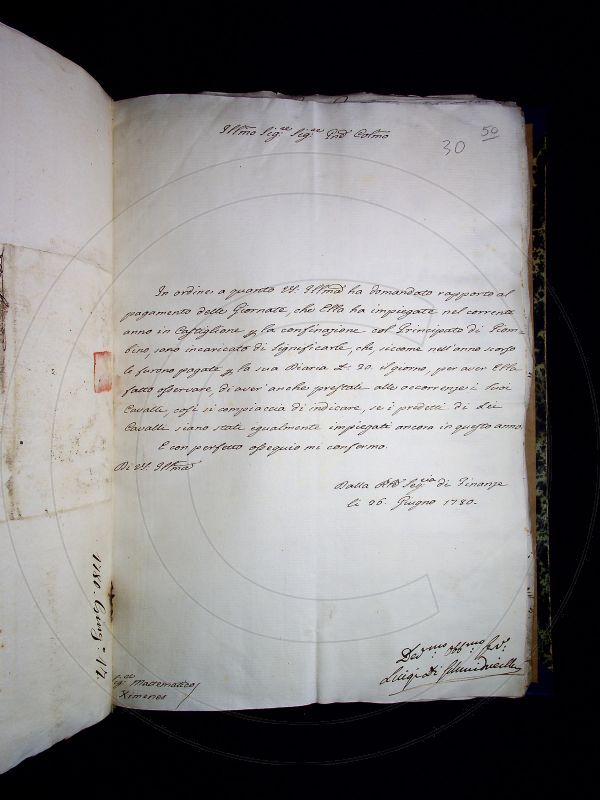 Ill.mo Sig.re Sig.re Pne Colmo
30
50
In ordine a quanto VS. Ill.ma ha domandato rapporto al
pagamento delle Giornate, che Ella ha impiegate nel corrente
anno in Castiglione p la confinazione col Principato di Piom-
bino, sono incaricato di significarle, che, siccome nell'anno scorso
le furono pagate p la sua Diaria L. 20. il giorno, per aver Ella
fatto osservare, di aver anche prestate alle occorrenze i suoi
Cavalli, così si compiaccia di indicare, se i predetti di Lei
Cavalli siano stati egualmente impiegati ancora in questo anno.
E con perfetto ossequio mi confermo.
Di VS. Ill.ma
Dalla Seg.ria di Finanze
li 26. Giugno 1780.
Dev.mo Obb.mo
Luigi
Sig.re Mattematico
Ximenes
1780. Giug.